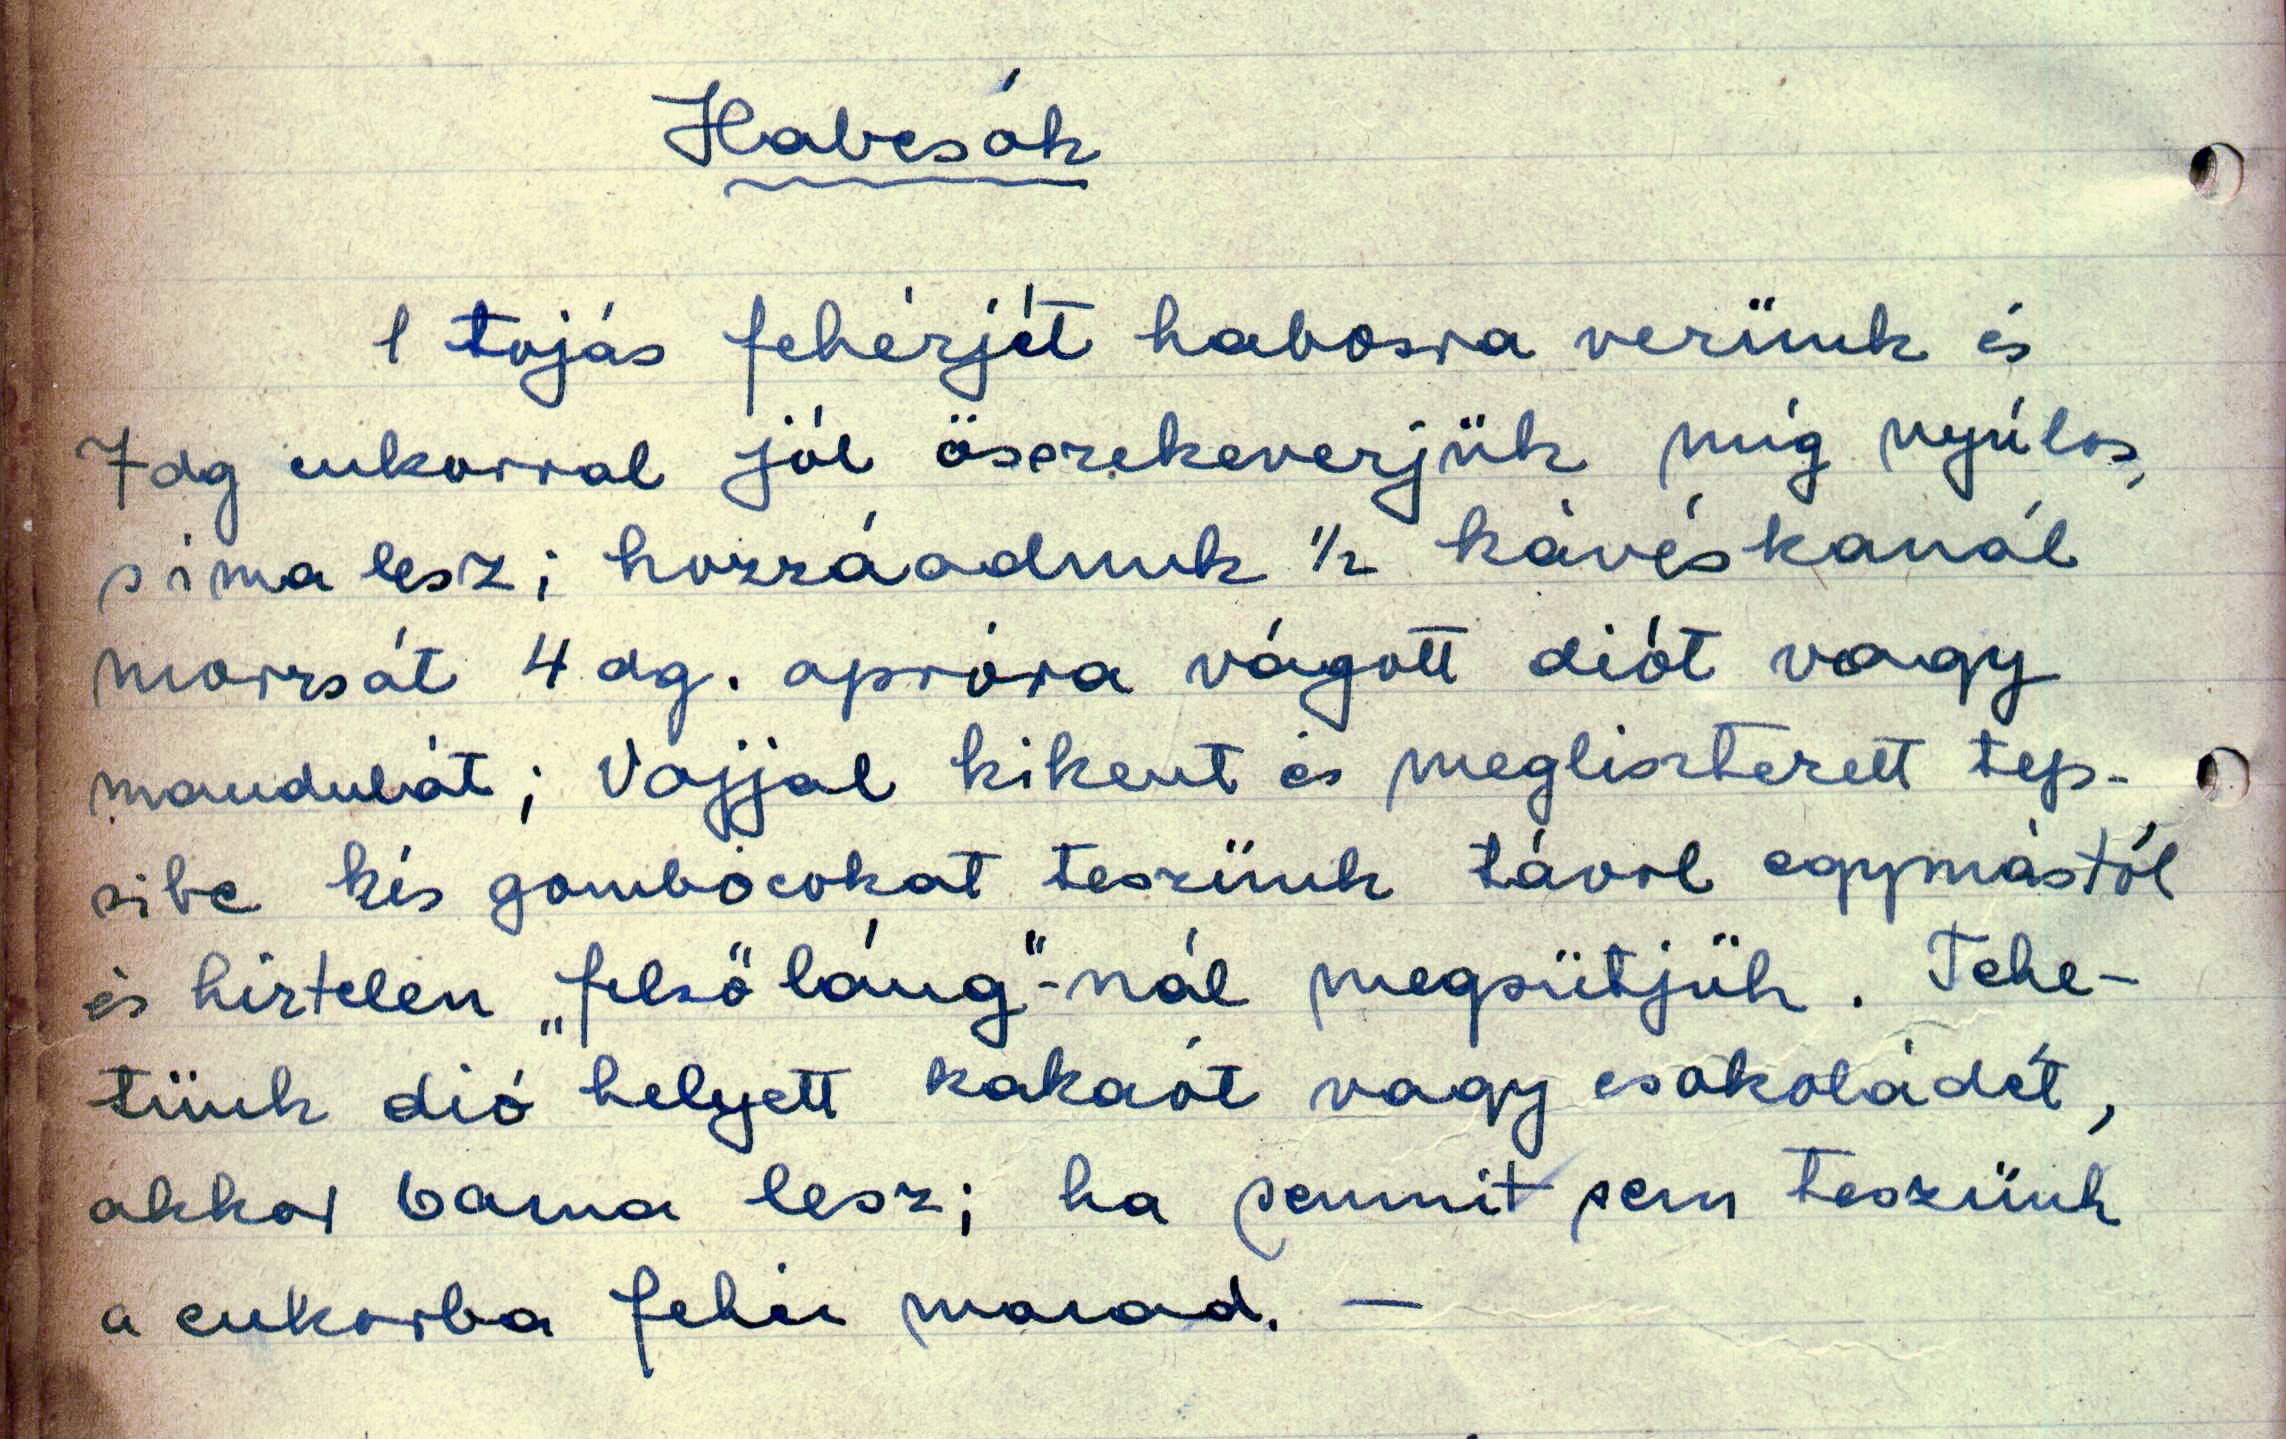 Habcsók
1 tojás fehérjét habosra verünk és
7 dg cukorral jól összekeverjük míg nyúlos,
síma lesz; hozzáadunk 1/2 kávéskanál
morzsát 4 dg. apróra vágott diót vagy
mandulát; Vajjal kikent és meglisztezett tep-
sibe kis gombócokat teszünk távol egymástól
és hirtelen „felső láng"-nál megsütjük. Tehe-
tünk dió helyett kakaót vagy csokoládét,
akkor barna lesz; ha semmit sem teszünk
a cukorba fehér marad. —